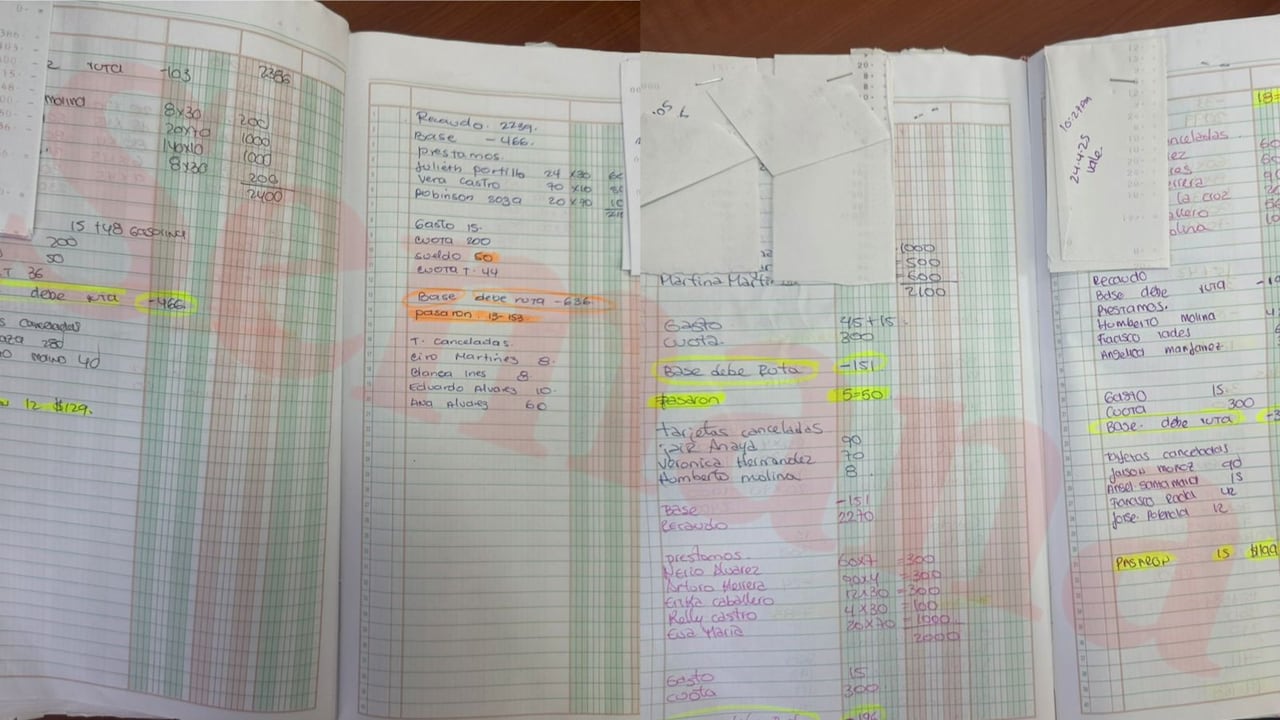 2 ruta -103 2386
molina 8x30 200
20x70 1000
140x10 1000
8x30 200
2400
15 +48 Gasolina
200
50
T 36
debe ruta -466
s canceladas
280
40
12 $129.
Recaudo. 2239.
Base -466.
prestamos.
Julieth portillo 24 x30
Vera castro 70 x10
Robinson sosa 20 x70
Gasto 15.
Cuota 200
sueldo 50
Cuota T. 44
Base debe ruta -636
pasaron 13-153
T. canceladas.
Ciro Martines 8.
Blanca Ines 8
Eduardo Alvares 10.
Ana Alvares 60
1000
500
600
Martina Mart
2100
Gasto 45+15.
Cuota. 300
Base debe Ruta -151
Pasaron 5=50
tarjetas canceladas
jair Anaya 90
Veronica Hernandez 70
Humberto molina 8.
Base -151
Recaudo 2270
prestamos.
Nerio Alvarez 60x7 =300
Arturo Herrera 90x4 =300
Erika caballero 12x30 =300
Kelly castro 4x30 =100
Eva Maria 20x70 =1000
2000
Gasto 15
Cuota 300
-196
10:27pm
24-4-25
Vale.
18=
anceladas
ez
errera
la cruz
allero
olina
Recaudo
Base debe ruta
Prestamos.
Humberto molina
Angelica manjarrez
Gasto 15.
Cuota 300
Base. debe ruta
tarjetas canceladas
Jaison monoz 90
Angel santamaria 15
Francisco Rada 42
Jorse. Polencia 12
PASARON 15 $199
Semana